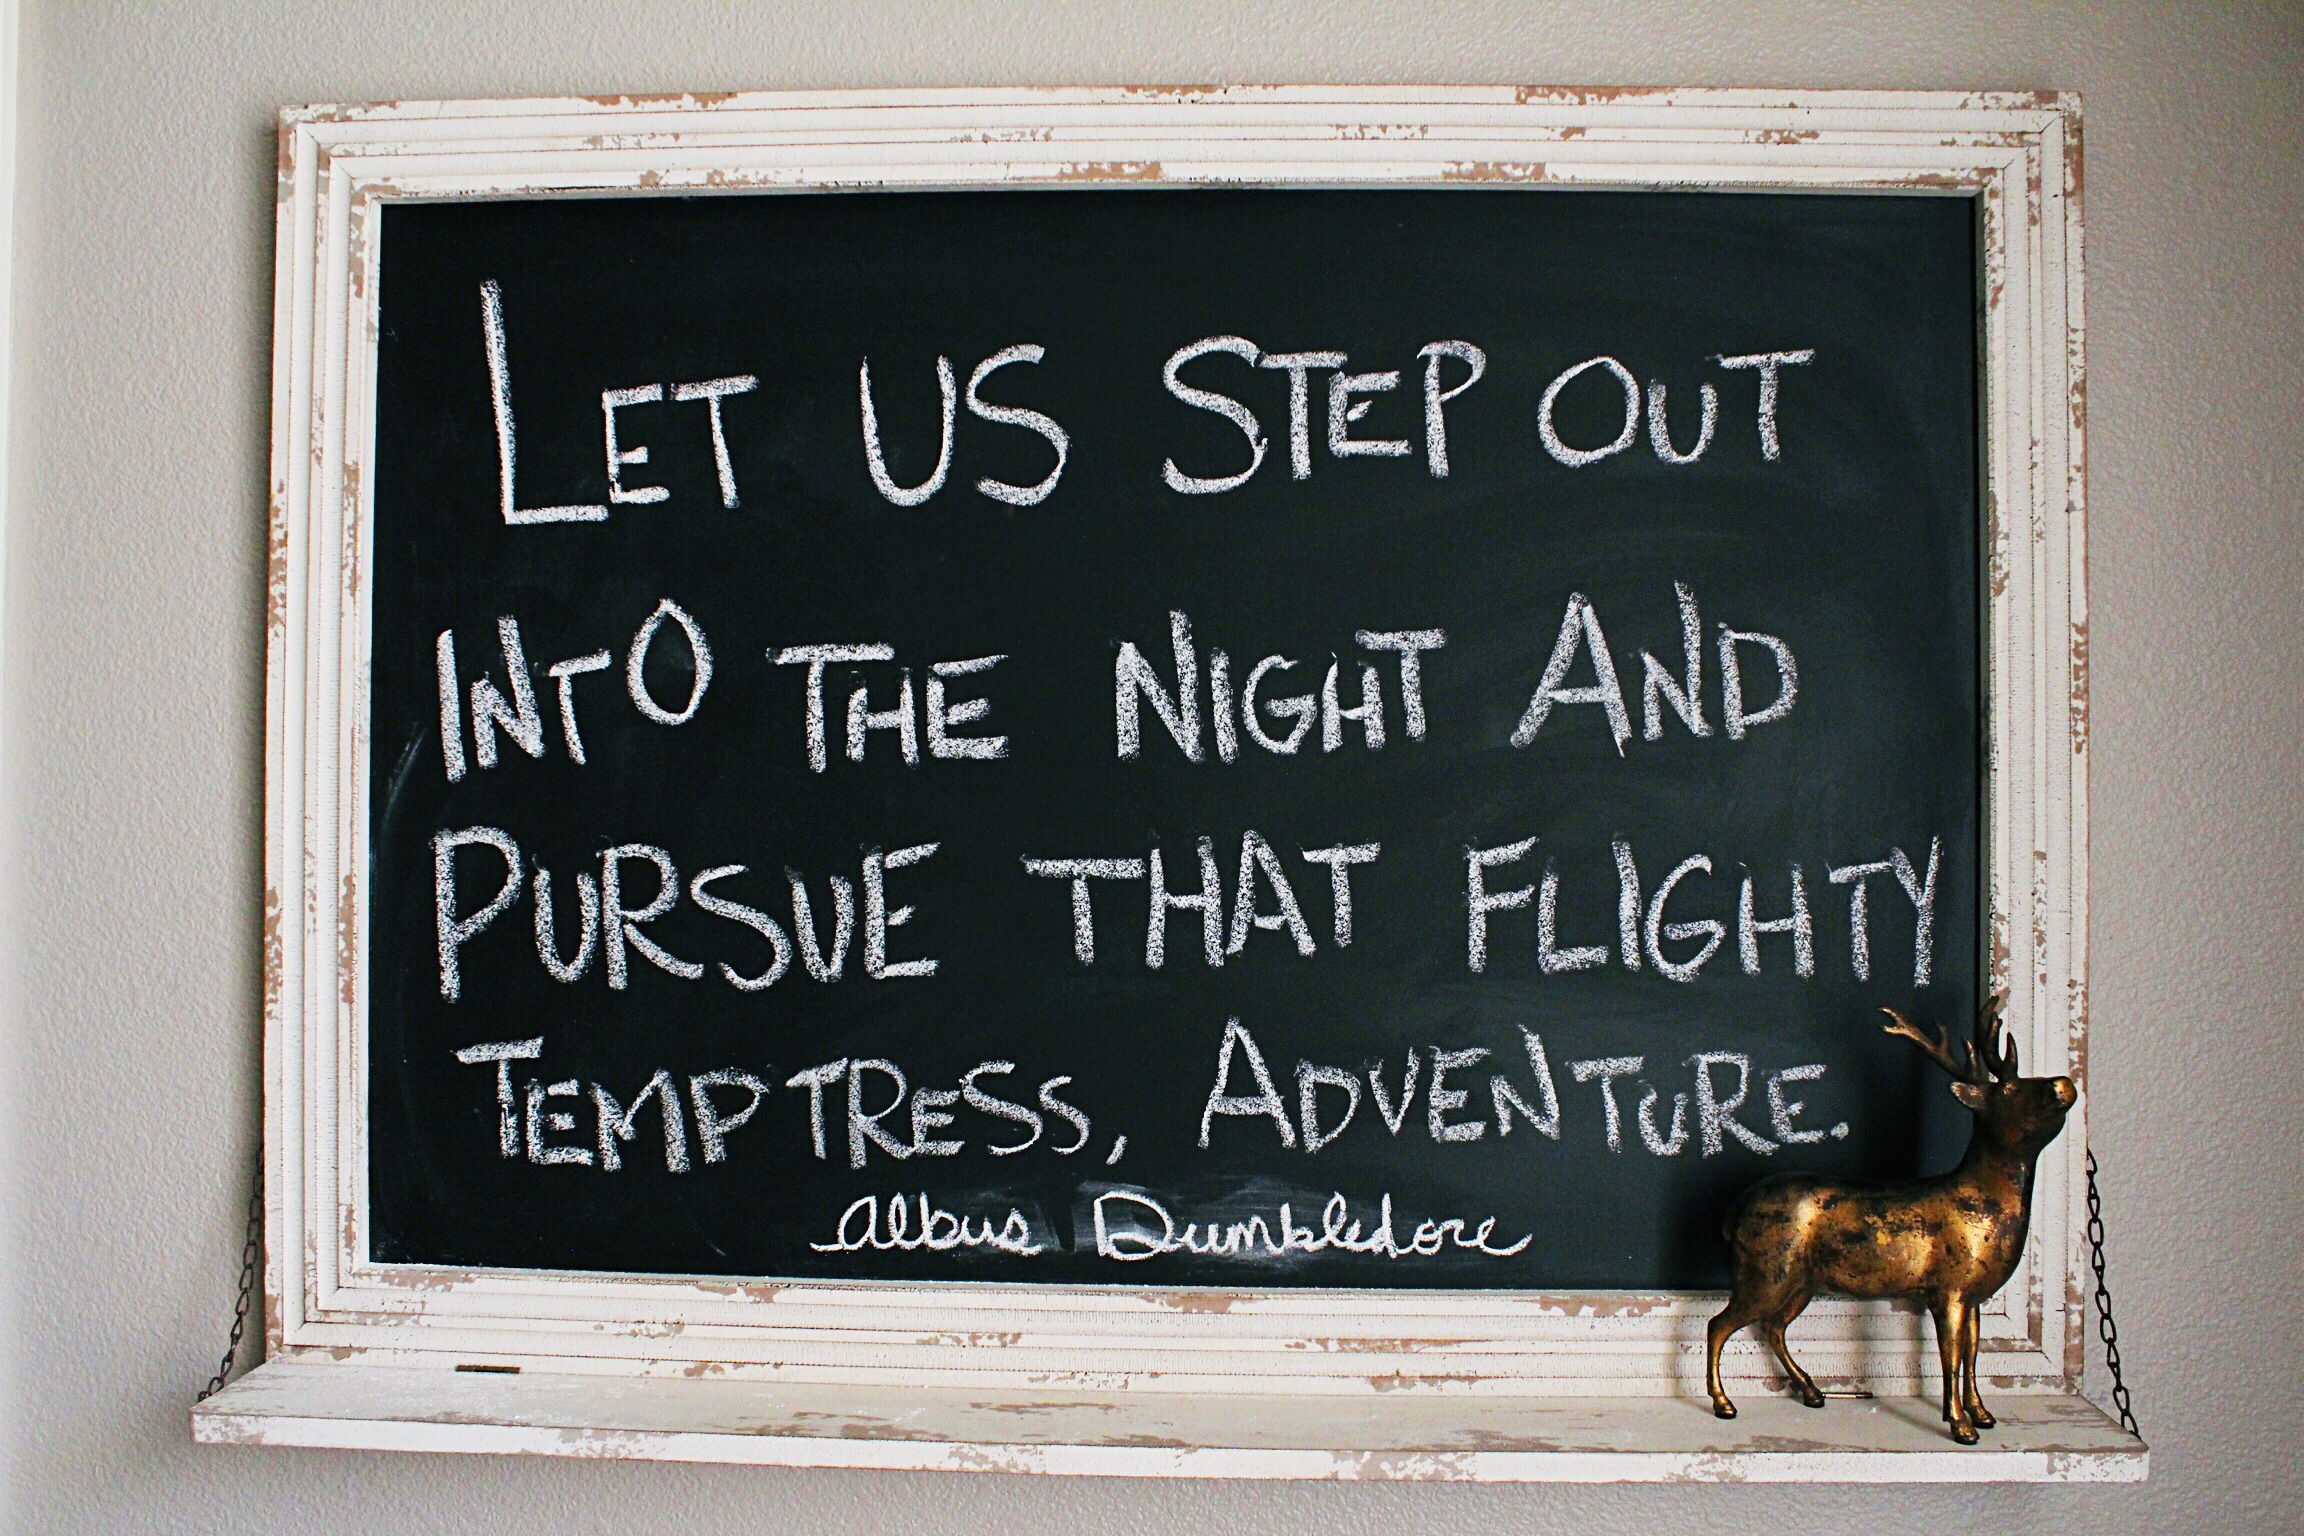 LET US STEP OUT
INTO THE NIGHT AND
PURSUE THAT FLIGHTY
TEMPTRESS, ADVENTURE.
Albus Dumbledore